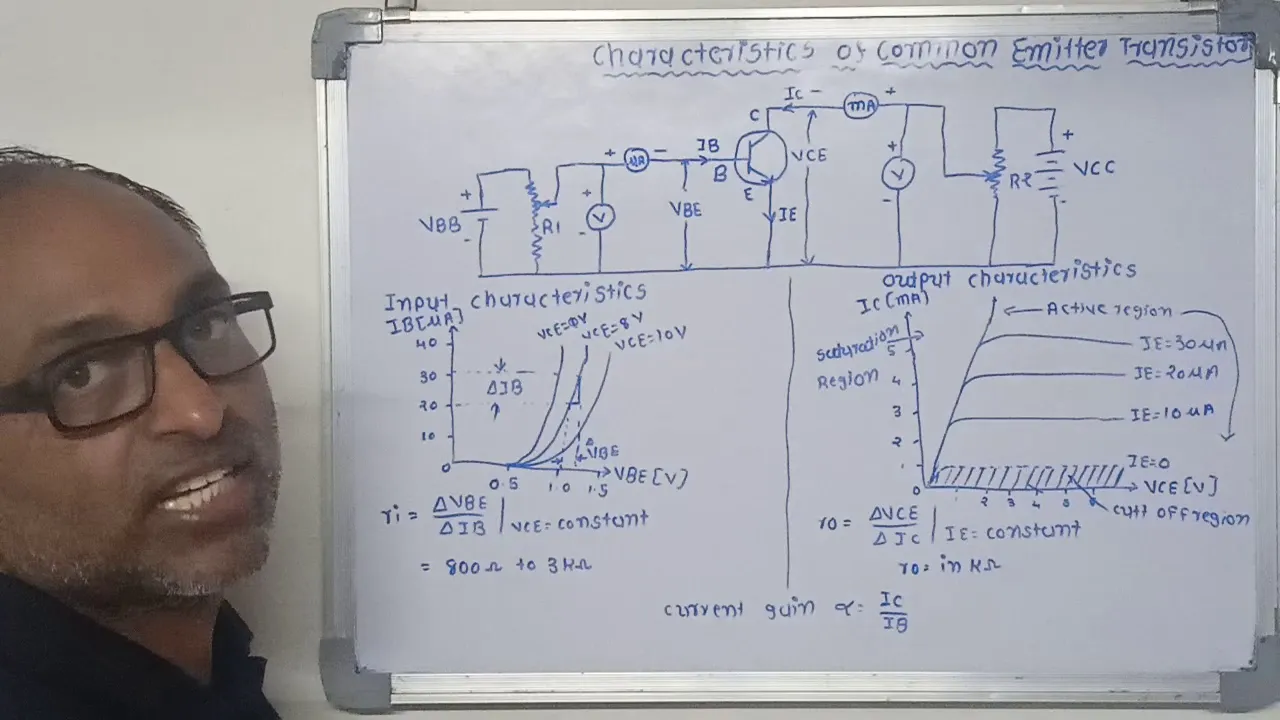 Characteristics of Common Emitter Transistor
Ic -
+
mA
C
+
μA
-
IB
B
E
VCE
IE
VBE
+
V
-
+
VBB
-
R1
+
V
-
R2
+
VCC
-
Input characteristics
IB[μA]
40
30
20
10
0
ΔIB
VCE=0V
VCE=8V
VCE=10V
Δ
VBE
0.5
1.0
1.5
VBE[V]
ri = ΔVBE
ΔIB | VCE= constant
= 800Ω to 3KΩ
Output characteristics
IC[mA]
Saturation
Region
5
4
3
2
1
0
Active region
IE=30μA
IE=20μA
IE=10μA
IE=0
2 3 4 5 6
VCE[V]
Cutt off region
ro = ΔVCE
Δ IC | IE= constant
ro= in KΩ
current gain α= IC
IB